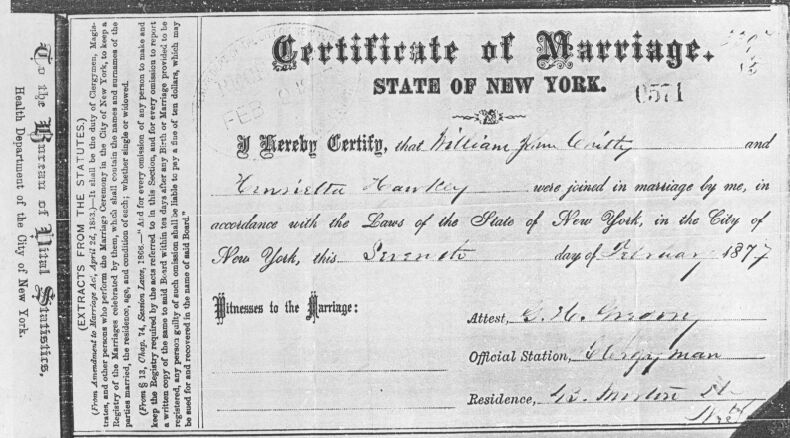 To the Bureau of Vital Statistics,
Health Department of the City of New York.
(EXTRACTS FROM THE STATUTES.)
(From Amendment to Marriage Act, April 2d, 1853.)—It shall be the duty of Clergymen, Magis-
trates, and other persons who perform the Marriage Ceremony in the City of New York, to keep a
Registry of the Marriages celebrated by them, which shall contain the names and surnames of the
parties married, the residence, age, and condition of each; whether single or widowed.
(From § 13, Chap. 74, Session Laws, 1866.—"And for every omission of any person to make and
keep the Registry required by the acts referred to in this Section, and for every omission to report
a written copy of the same to said Board within ten days after any Birth or Marriage provided to be
registered, any person guilty of such omission shall be liable to pay a fine of ten dollars, which may
be sued for and recovered in the name of said Board."
Certificate of Marriage.
STATE OF NEW YORK.
0571
FEB
I Hereby Certify, that William John and
Henrietta Hawkey were joined in marriage by me, in
accordance with the Laws of the State of New York, in the City of
New York, this Seventh day of February 1877
Witnesses to the Marriage:
Attest, G. H.
Official Station, Clergyman
Residence, Morton St